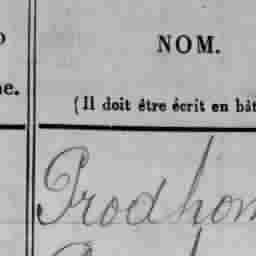 NOM.
(Il doit être écrit en bât
ne.
Prodhom